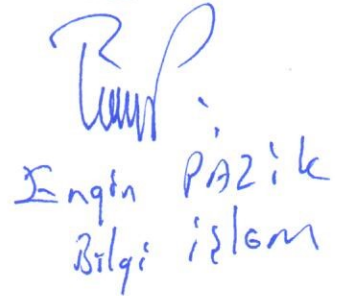 Engin PAZik
Bilgi işlem